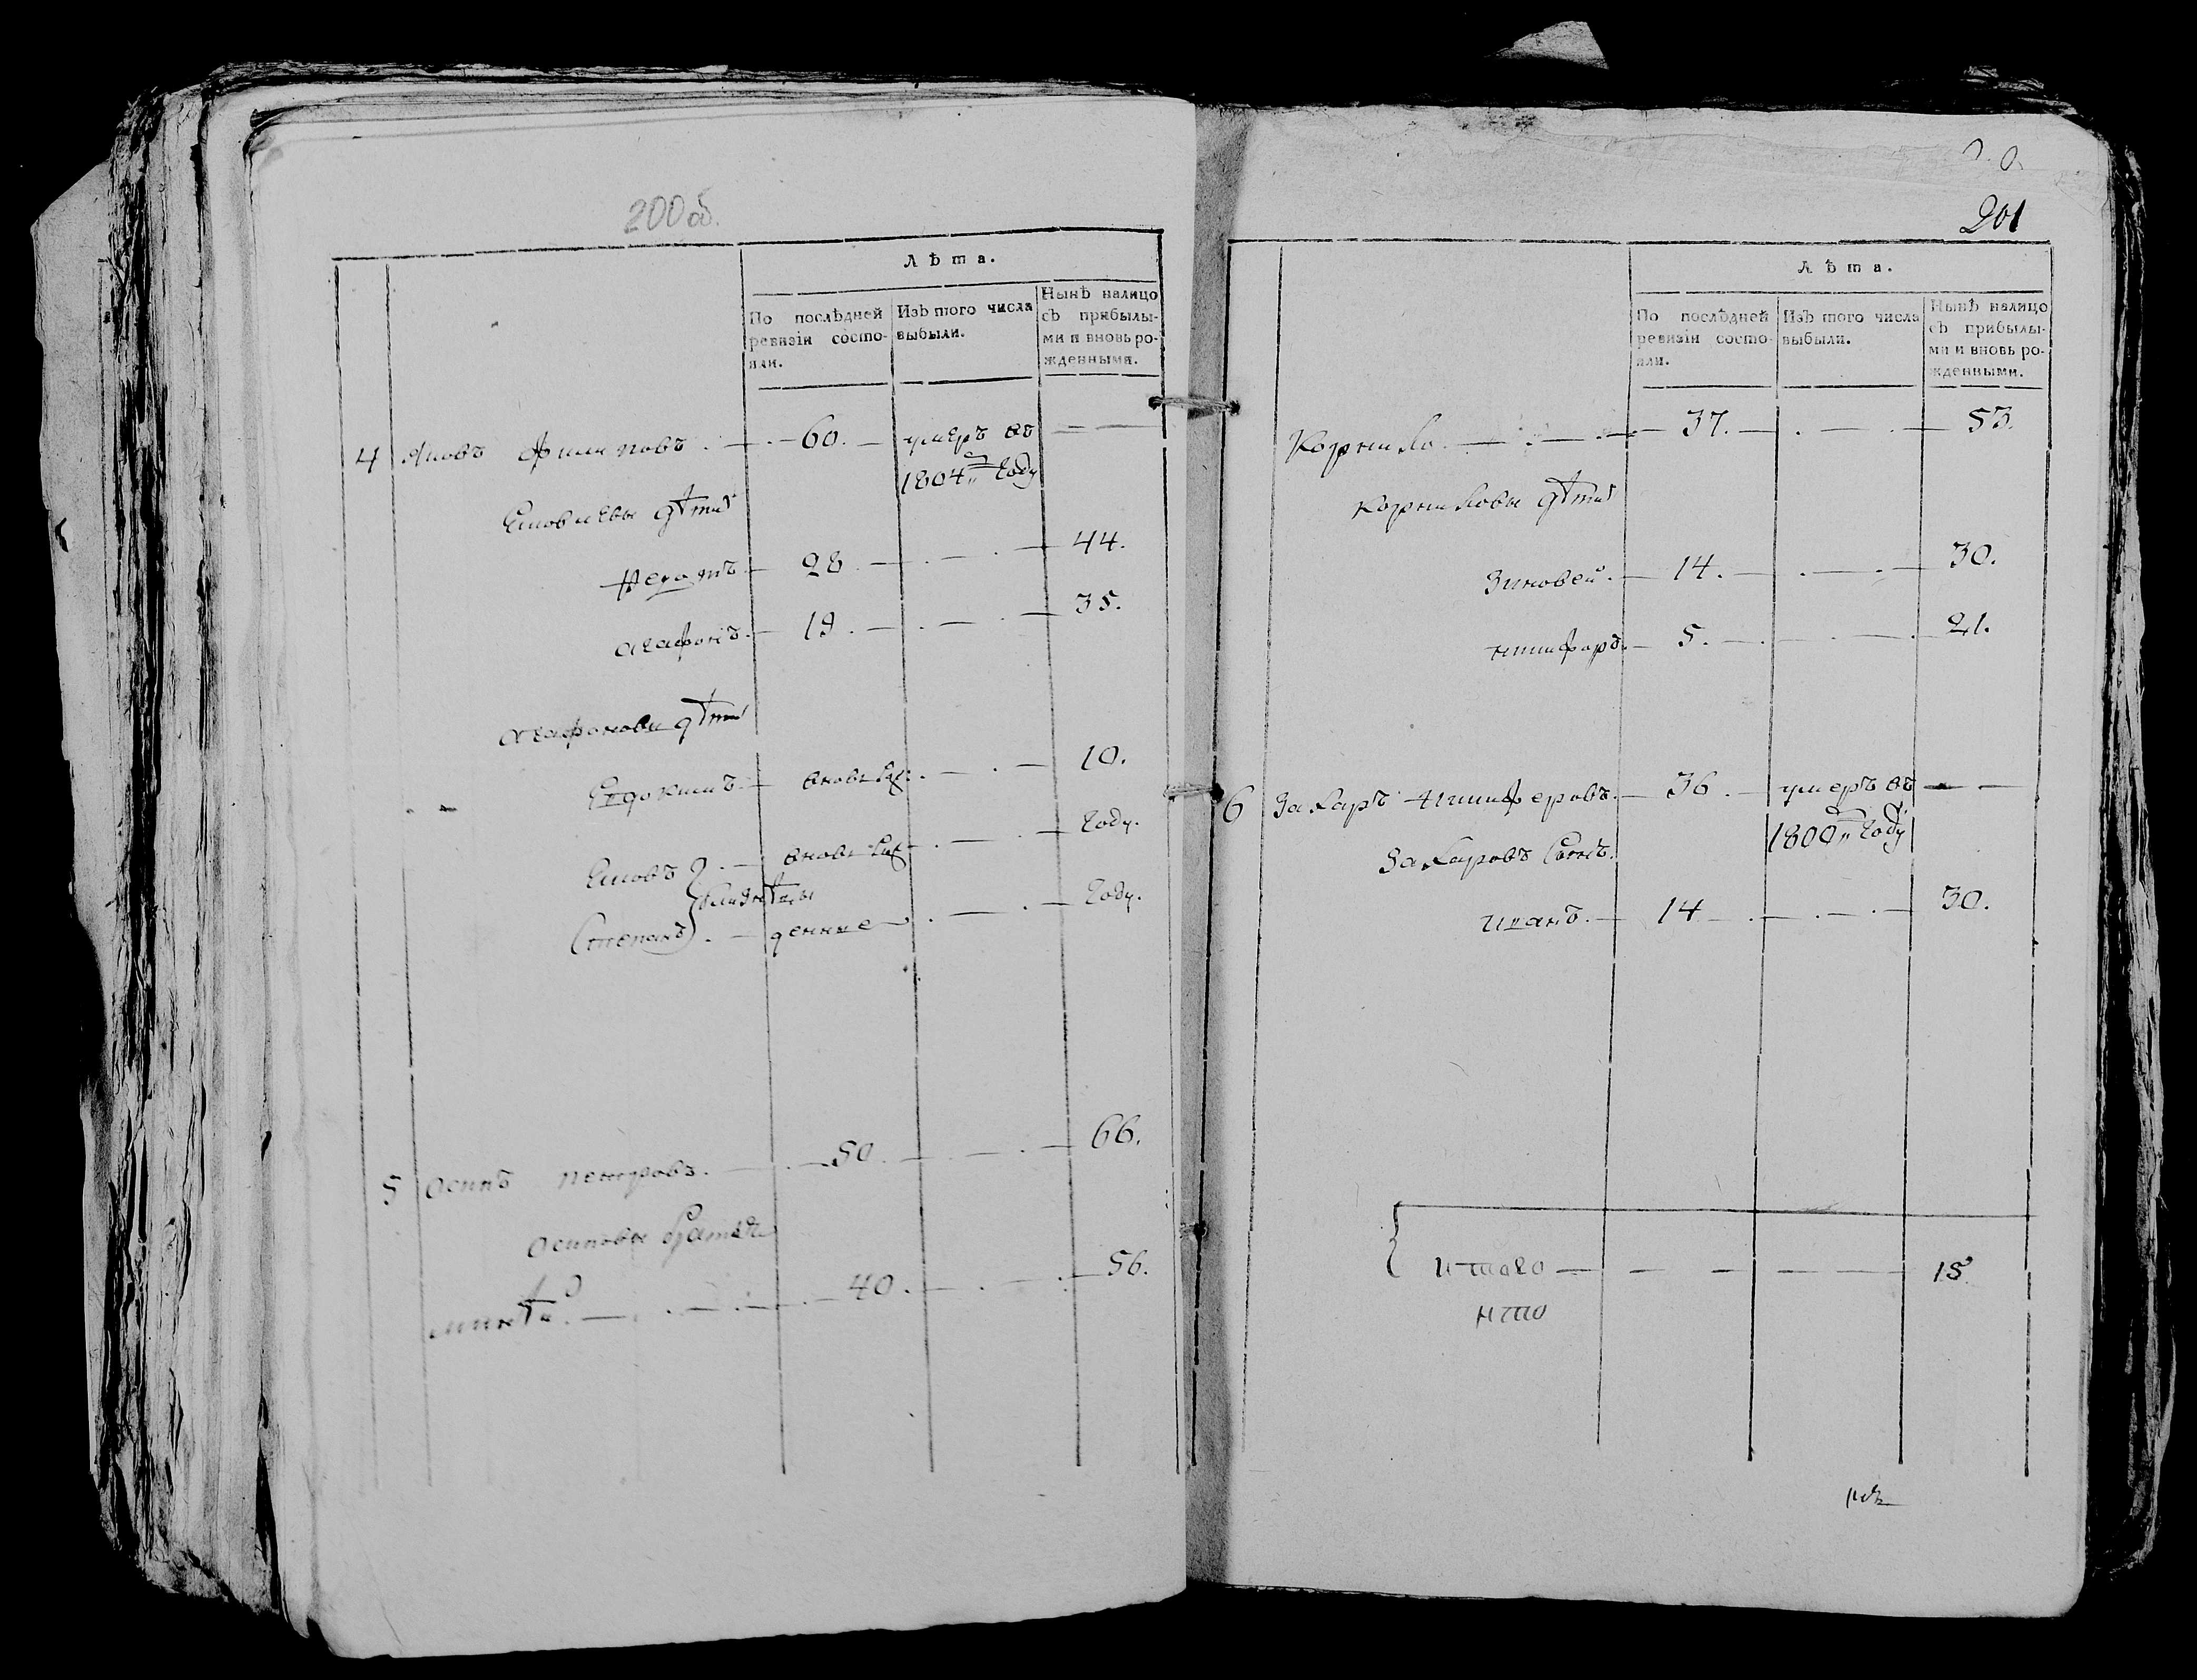 200 об.
Лѣта.
По послѣдней ревизіи состояли.
Изъ того числа выбыли.
Нынѣ налицо съ прибылыми и вновь рожденными.
4 Яковъ Филиповъ. 60. умеръ въ
1804м году
Яковлевы дѣти
28 44.
агафонъ 19. 35.
агафоновы дѣти
Евдокимъ вновь рож: 10.
Яковъ вновь рож году.
близнѣцы
Степанъ денные году.
5 Осипъ петровъ. 50. 66.
Осиповы братья
40. 56.
201
Лѣта.
По послѣдней ревизіи состояли.
Изъ того числа выбыли.
Нынѣ налицо съ прибылыми и вновь рожденными.
Корнило 37. 53.
Корниловы дѣти
Зиновей. 14. 30.
никифоръ. 5. 21.
6 Захаръ Никиферовъ. 36. умеръ въ
1800м году
Захаровъ сынъ.
иванъ. 14 30.
итого 15.